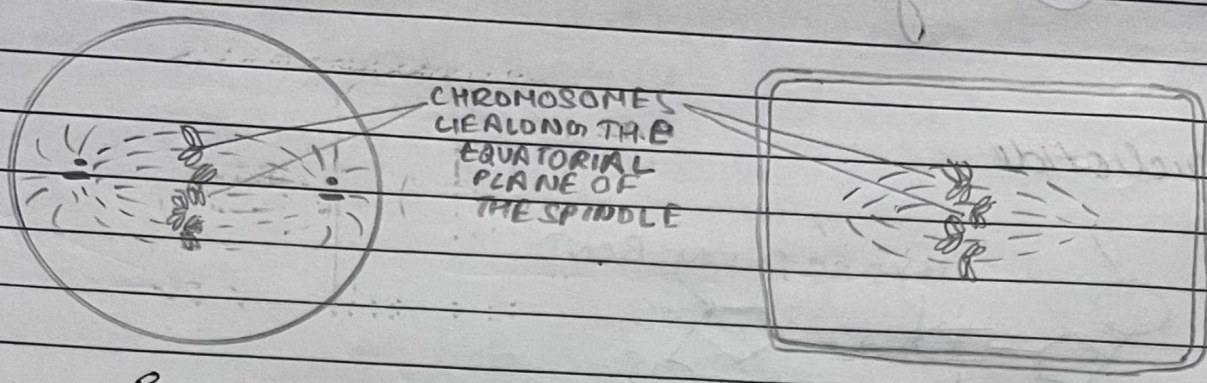 CHROMOSOMES
LIE ALONG THE
EQUATORIAL
PLANE OF
THE SPINDLE